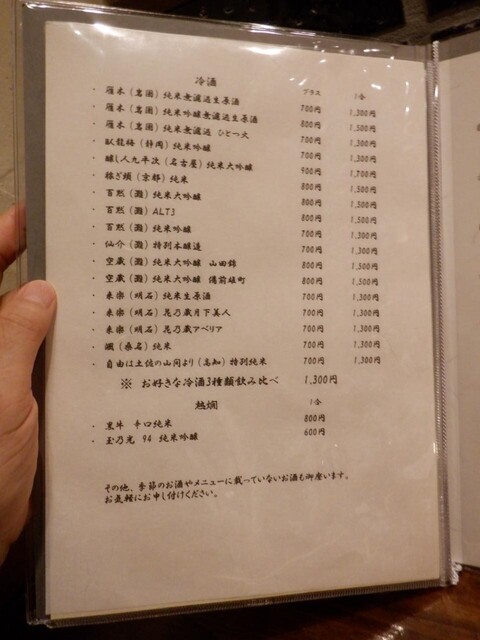 冷酒
グラス 1合
・ 雁木（岩国）純米無濾過生原酒 700円 1,300円
・ 雁木（岩国）純米吟醸無濾過生原酒 800円 1,500円
・ 雁木（岩国）純米無濾過 ひとつ火 700円 1,300円
・ 臥龍梅（静岡）純米吟醸 700円 1,300円
・ 醸し人九平次（名古屋）純米大吟醸 900円 1,700円
・ 稼ぎ頭（京都）純米 800円 1,500円
・ 百黙（灘）純米大吟醸 800円 1,500円
・ 百黙（灘）ALT3 800円 1,500円
・ 百黙（灘）純米吟醸 700円 1,300円
・ 仙介（灘）特別本醸造 700円 1,300円
・ 空蔵（灘）純米大吟醸 山田錦 800円 1,500円
・ 空蔵（灘）純米大吟醸 備前雄町 800円 1,500円
・ 来楽（明石）純米生原酒 700円 1,300円
・ 来楽（明石）花乃蔵月下美人 700円 1,300円
・ 来楽（明石）花乃蔵アベリア 700円 1,300円
・ 颯（桑名）純米 700円 1,300円
・ 自由は土佐の山間より（高知）特別純米 700円 1,300円
※ お好きな冷酒3種類飲み比べ 1,300円
熱燗 1合
・ 黒牛 辛口純米 800円
・ 玉乃光 94 純米吟醸 600円
その他、季節のお酒やメニューに載っていないお酒も御座います。
お気軽にお申し付けください。